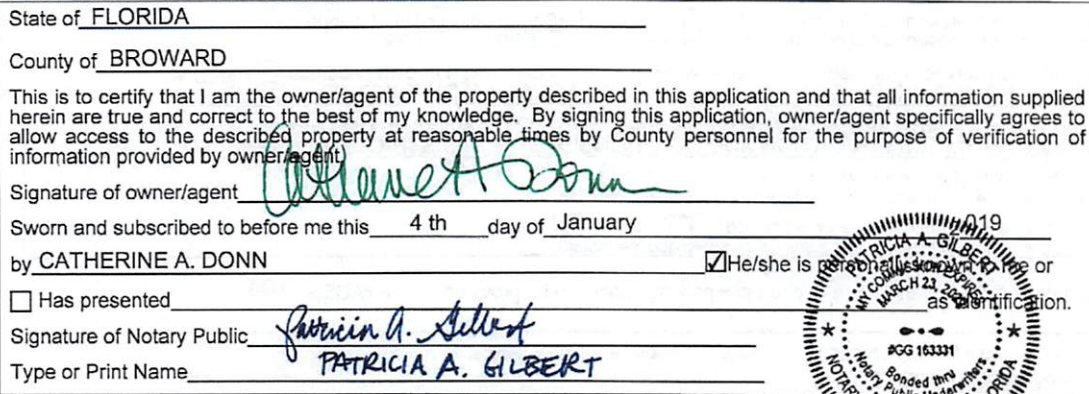 State of FLORIDA
County of BROWARD
This is to certify that I am the owner/agent of the property described in this application and that all information supplied
herein are true and correct to the best of my knowledge. By signing this application, owner/agent specifically agrees to
allow access to the described property at reasonable times by County personnel for the purpose of verification of
information provided by owner/agent)
Signature of owner/agent Catherine A Donn
Sworn and subscribed to before me this 4 th day of January 019
by CATHERINE A. DONN ☑ He/she is personally known to me or
☐ Has presented as identification.
Signature of Notary Public Patricia A. Gilbert
Type or Print Name PATRICIA A. GILBERT
PATRICIA A. GILBERT
MY COMMISSION EXPIRES
MARCH 23,
#GG 163331
Bonded thru
Notary Public Underwriters
NOTARY
FLORIDA